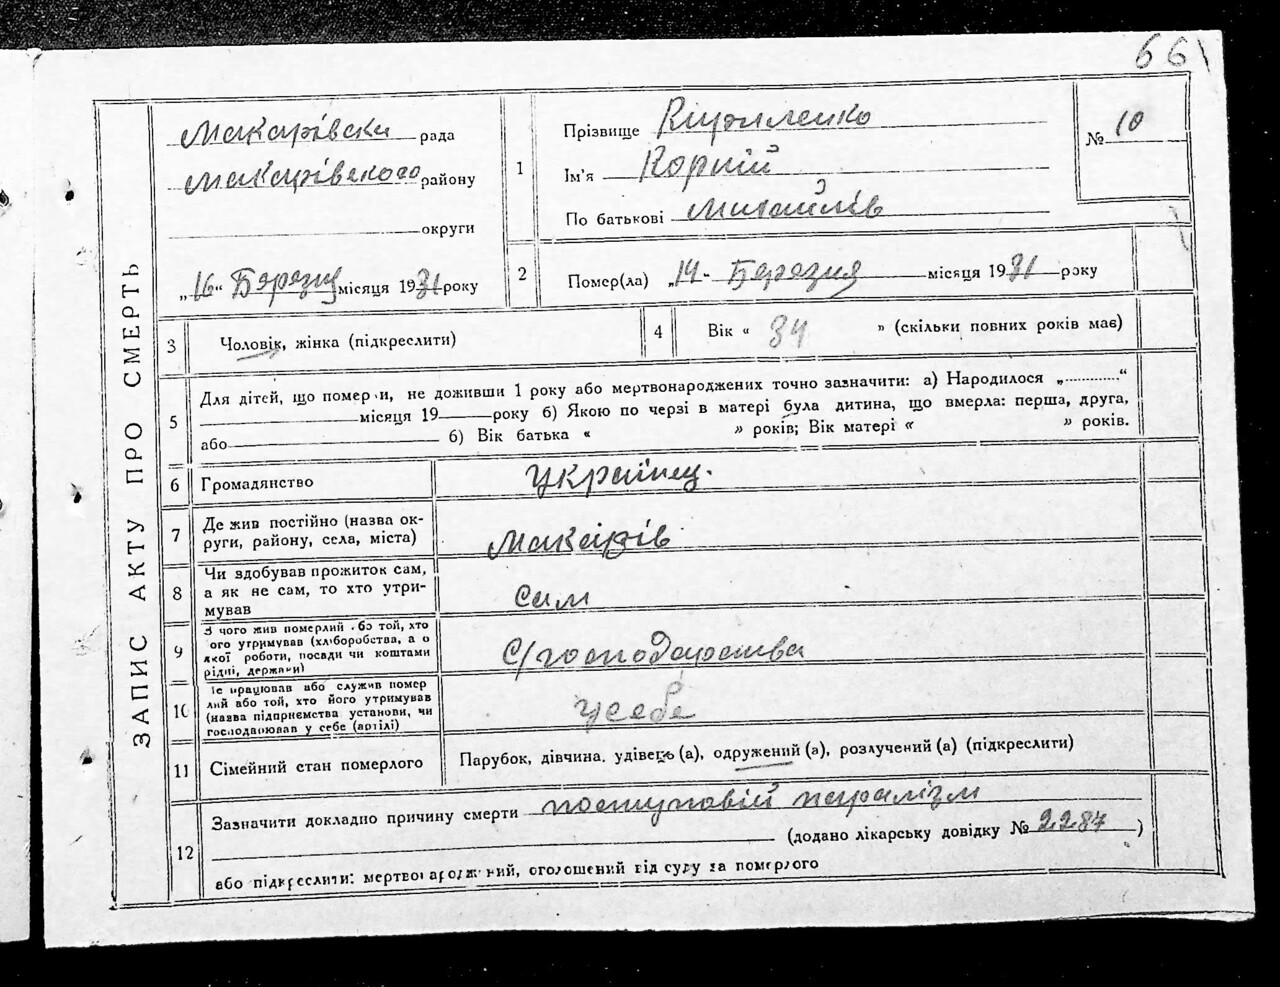 66
ЗАПИС АКТУ ПРО СМЕРТЬ
Макарівська рада
Макарівского району
округи
„16“ Березня місяця 1931 року
1
Прізвище Кириленко
Ім'я Корній
По батькові Михайлів
№ 10
2
Помер(ла) „14“ Березня місяця 1931 року
3
Чоловік, жінка (підкреслити)
4
Вік « 34 » (скільки повних років має)
5
Для дітей, що померли, не доживши 1 року або мертвонароджених точно зазначити: а) Народилося „..........“
місяця 19 року б) Якою по черзі в матері була дитина, що вмерла: перша, друга,
або б) Вік батька « » років; Вік матері « » років.
6
Громадянство
Українец.
7
Де жив постійно (назва ок-
руги, району, села, міста)
Макарів
8
Чи здобував прожиток сам,
а як не сам, то хто утри-
мував
сам
9
З чого жив померлий або той, хто
ого утримував (хліборобства, а о
якої роботи, посади чи коштами
рідні, держави)
С/господарства
10
Де працював або служив помер
лий або той, хто його утримував
(назва підприємства установи, чи
господарював у себе (артілі)
у себе
11
Сімейний стан померлого
Парубок, дівчина, удівець (а), одружений (а), розлучений (а) (підкреслити)
12
Зазначити докладно причину смерти поступовій паралізм
(додано лікарську довідку № 2287)
або підкреслити: мертвонароджений, оголошений від суду за померлого